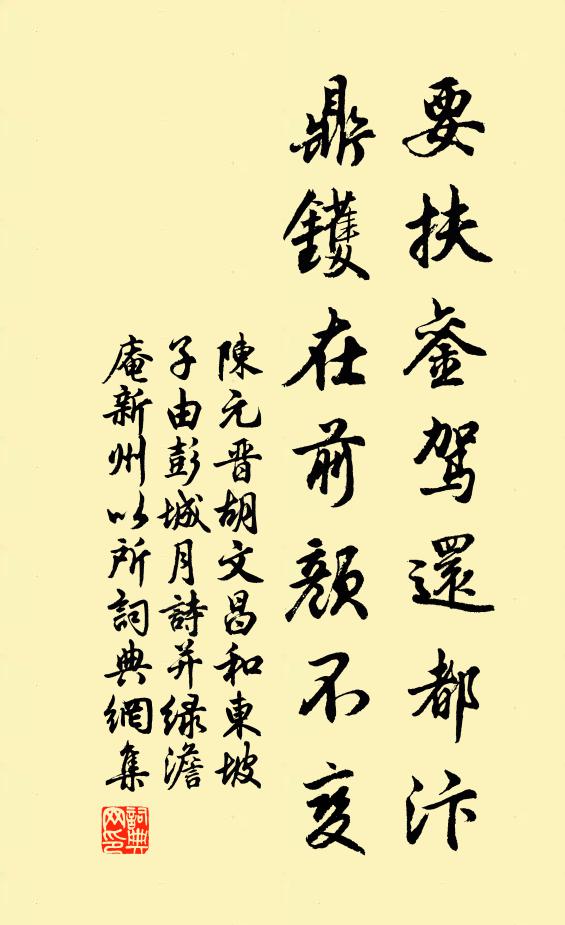 要扶銮駕還都汴
鼎鑊在前顔不变
陳元晋胡文昌和東坡
子由彭城月詩并緑澹
庵新州以所詞典網集
詞典网印